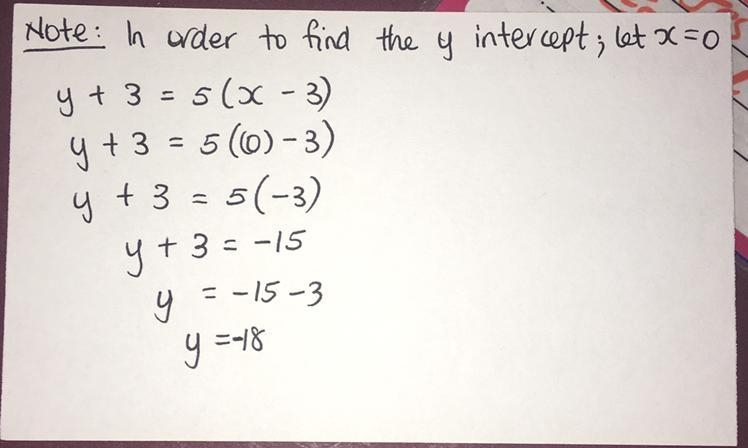 Note: In order to find the y intercept; let x=0
y + 3 = 5(x - 3)
y + 3 = 5((0) - 3)
y + 3 = 5(-3)
y + 3 = -15
y = -15 - 3
y = -18